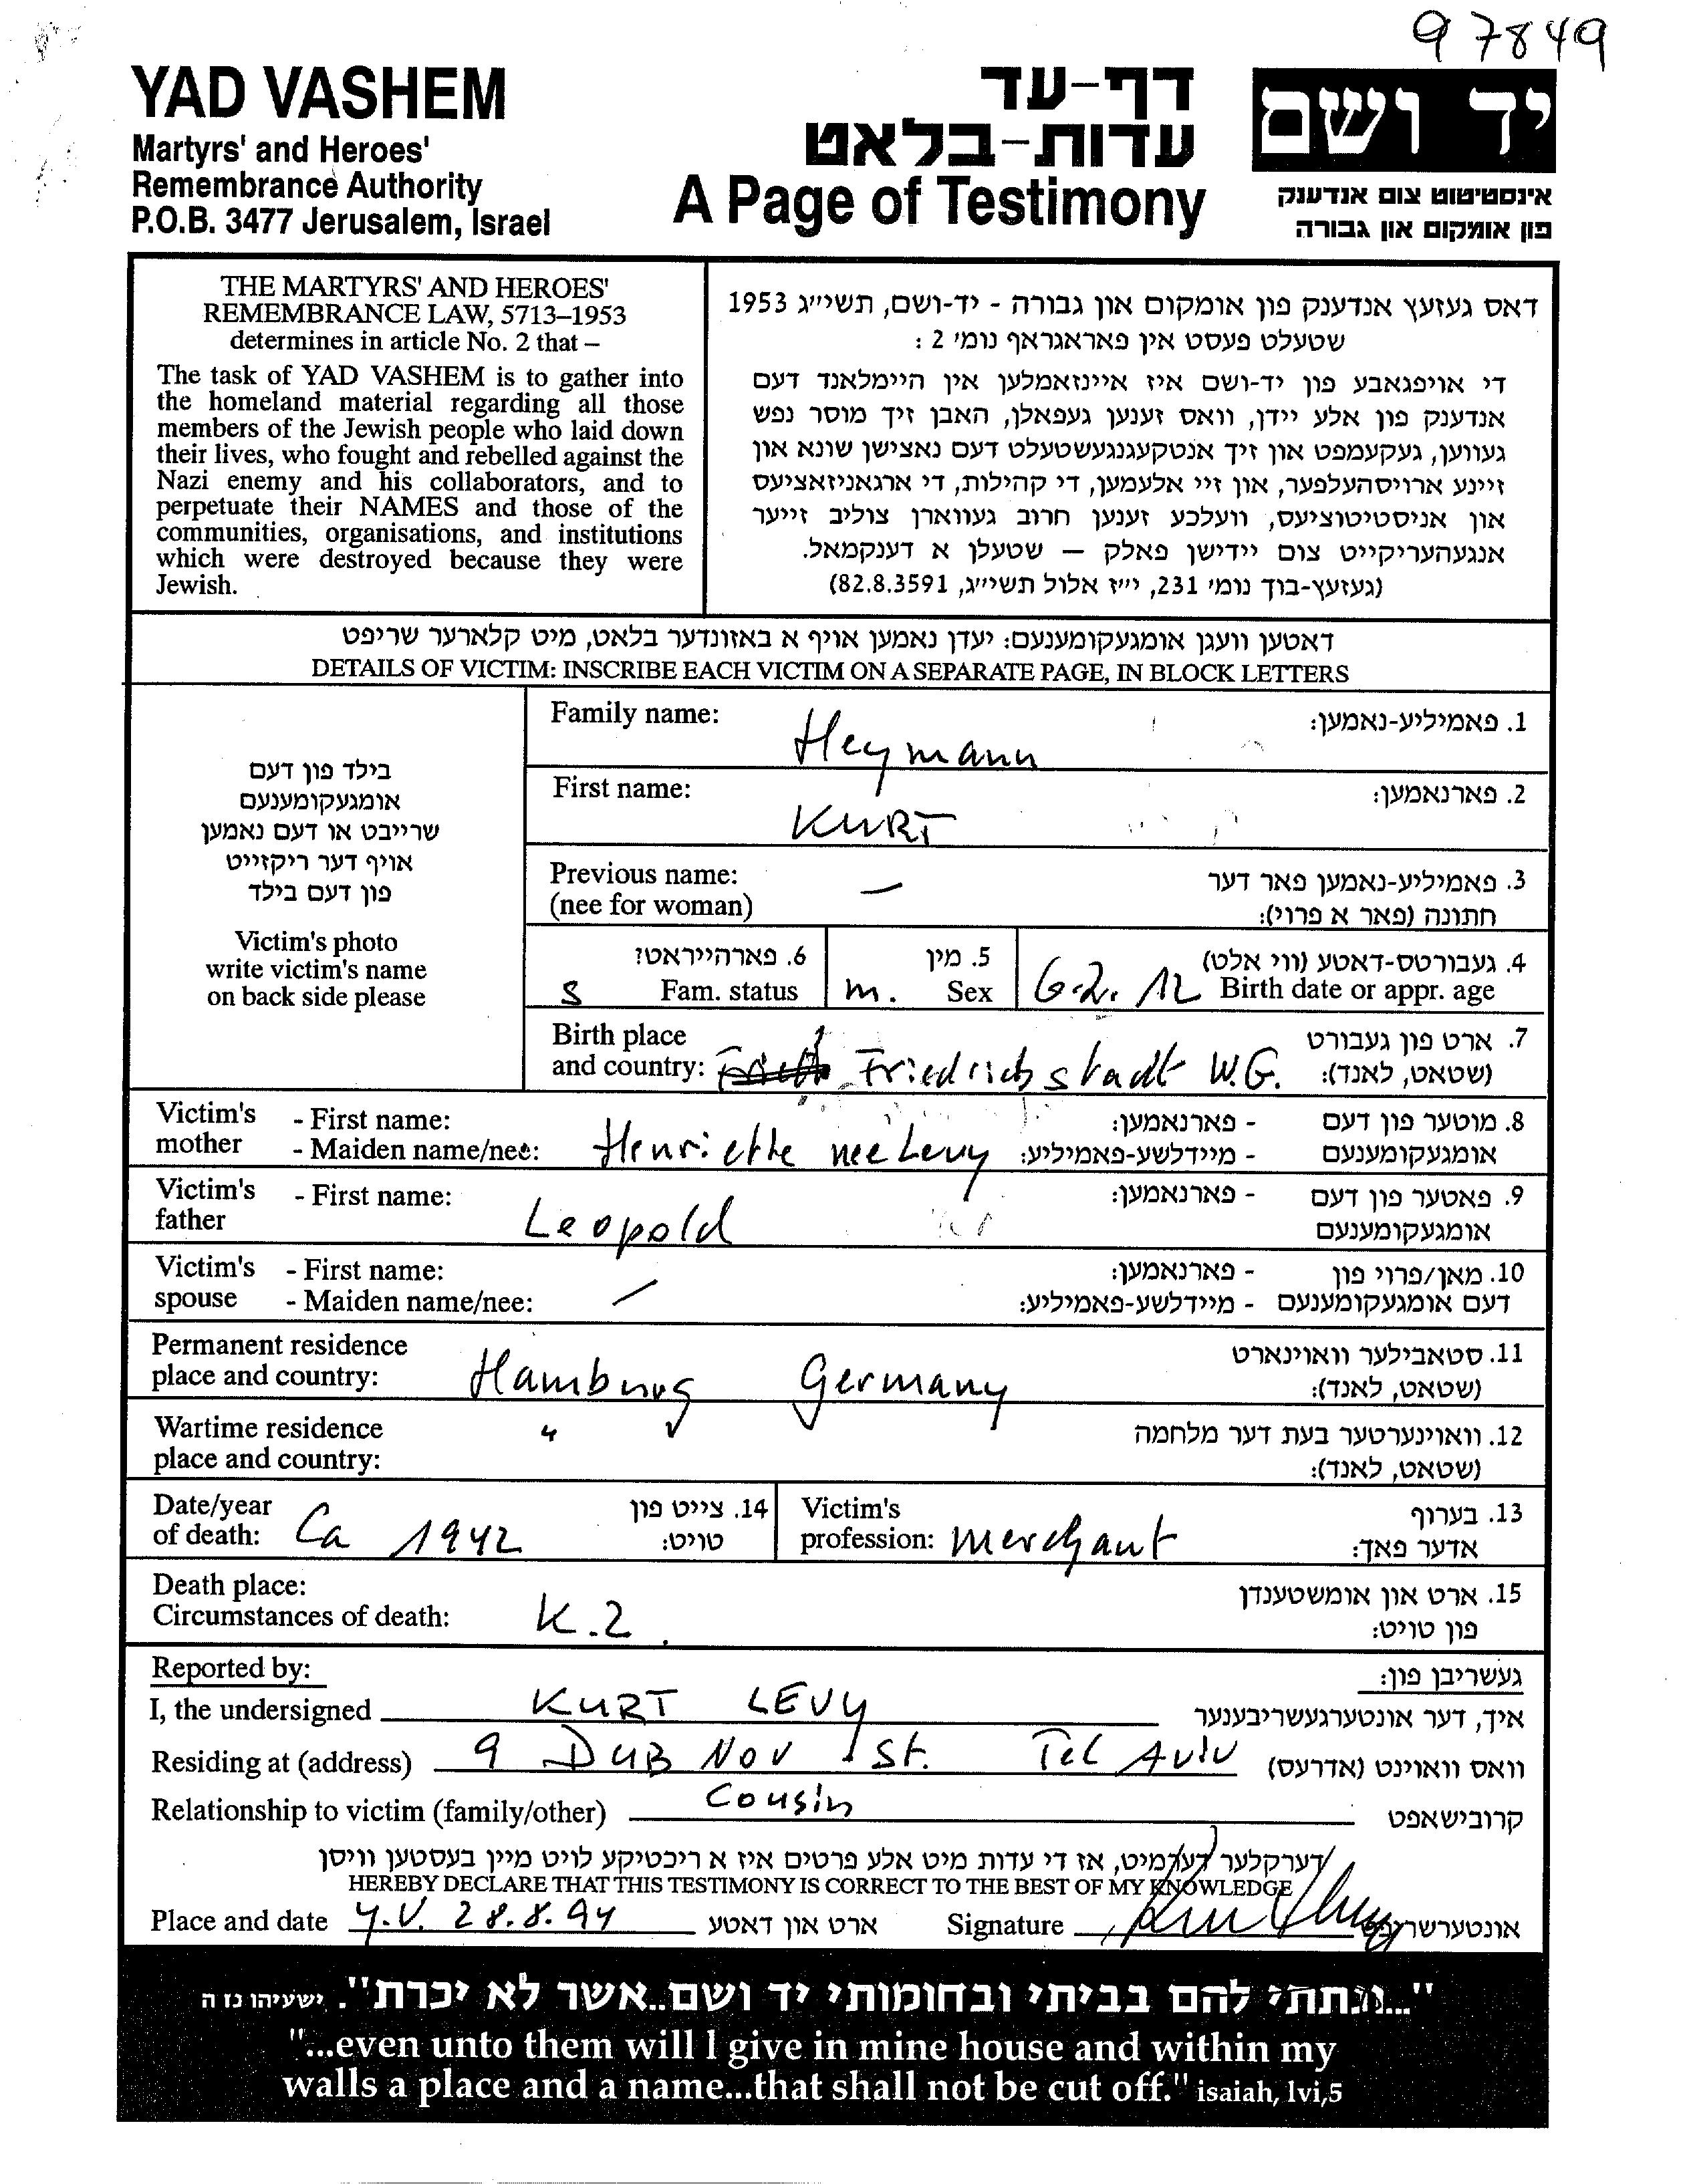 97849
YAD VASHEM
Martyrs' and Heroes'
Remembrance Authority
P.O.B. 3477 Jerusalem, Israel
דף-עד
עדות-בלאט
A Page of Testimony
יד ושם
אינסטיטוט צום אנדענק
פון אומקום און גבורה
THE MARTYRS' AND HEROES'
REMEMBRANCE LAW, 5713–1953
determines in article No. 2 that –
The task of YAD VASHEM is to gather into
the homeland material regarding all those
members of the Jewish people who laid down
their lives, who fought and rebelled against the
Nazi enemy and his collaborators, and to
perpetuate their NAMES and those of the
communities, organisations, and institutions
which were destroyed because they were
Jewish.
דאס געזעץ אנדענק פון אומקום און גבורה - יד-ושם, תשי״ג 1953
שטעלט פעסט אין פאראגראף נומ׳ 2 :
די אויפגאבע פון יד-ושם איז איינזאמלען אין היימלאנד דעם
אנדענק פון אלע יידן, וואס זענען געפאלן, האבן זיך מוסר נפש
געווען, געקעמפט און זיך אנטקעגנגעשטעלט דעם נאצישן שונא און
זיינע ארויסהעלפער, און זיי אלעמען, די קהילות, די ארגאניזאציעס
און אניסטיטוציעס, וועלכע זענען חרוב געווארן צוליב זייער
אנגעהעריקייט צום יידישן פאלק – שטעלן א דענקמאל.
(געזעץ-בוך נומ׳ 231, י״ז אלול תשי״ג, 82.8.3591)
דאטען וועגן אומגעקומענעם: יעדן נאמען אויף א באזונדער בלאט, מיט קלארער שריפט
DETAILS OF VICTIM: INSCRIBE EACH VICTIM ON A SEPARATE PAGE, IN BLOCK LETTERS
בילד פון דעם
אומגעקומענעם
שרייבט או דעם נאמען
אויף דער ריקזייט
פון דעם בילד
Victim's photo
write victim's name
on back side please
Family name: Heymann 1. פאמיליע-נאמען:
First name: KURT 2. פארנאמען:
Previous name: – 3. פאמיליע-נאמען פאר דער
(nee for woman) חתונה (פאר א פרוי):
6. פארהייראט? 5. מין 4. געבורטס-דאטע (ווי אלט)
S Fam. status m. Sex 6.2.12 Birth date or appr. age
Birth place 7. ארט פון געבורט
and country: Friedrichstadt W.G. (שטאט, לאנד):
Victim's - First name: - פארנאמען: 8. מוטער פון דעם
mother - Maiden name/nee: Henriette nee Levy - מיידלשע-פאמיליע: אומגעקומענעם
Victim's - First name: - פארנאמען: 9. פאטער פון דעם
father Leopold אומגעקומענעם
Victim's - First name: - פארנאמען: 10. מאן/פרוי פון
spouse - Maiden name/nee: – - מיידלשע-פאמיליע: דעם אומגעקומענעם
Permanent residence 11. סטאבילער וווינארט
place and country: Hamburg Germany (שטאט, לאנד):
Wartime residence " " 12. וווינערטער בעת דער מלחמה
place and country: (שטאט, לאנד):
Date/year 14. צייט פון Victim's 13. בערוף
of death: Ca 1942 טויט: profession: Merchant אדער פאך:
Death place: 15. ארט און אומשטענדן
Circumstances of death: K.Z. פון טויט:
Reported by: געשריבן פון:
I, the undersigned KURT LEVY איך, דער אונטערגעשריבענער
Residing at (address) 9 DUBNOV St. Tel Aviv וואס וווינט (אדרעס)
Relationship to victim (family/other) Cousin קרובישאפט
דערקלער דערמיט, אז די עדות מיט אלע פרטים איז א ריכטיקע לויט מיין בעסטען וויסן
HEREBY DECLARE THAT THIS TESTIMONY IS CORRECT TO THE BEST OF MY KNOWLEDGE
Place and date Y.V. 28.8.94 ארט און דאטע Signature Kurt Levy אונטערשריפט
"...ונתתי להם בביתי ובחומותי יד ושם..אשר לא יכרת". ישעיהו נו ה
"...even unto them will I give in mine house and within my
walls a place and a name...that shall not be cut off." isaiah, lvi,5